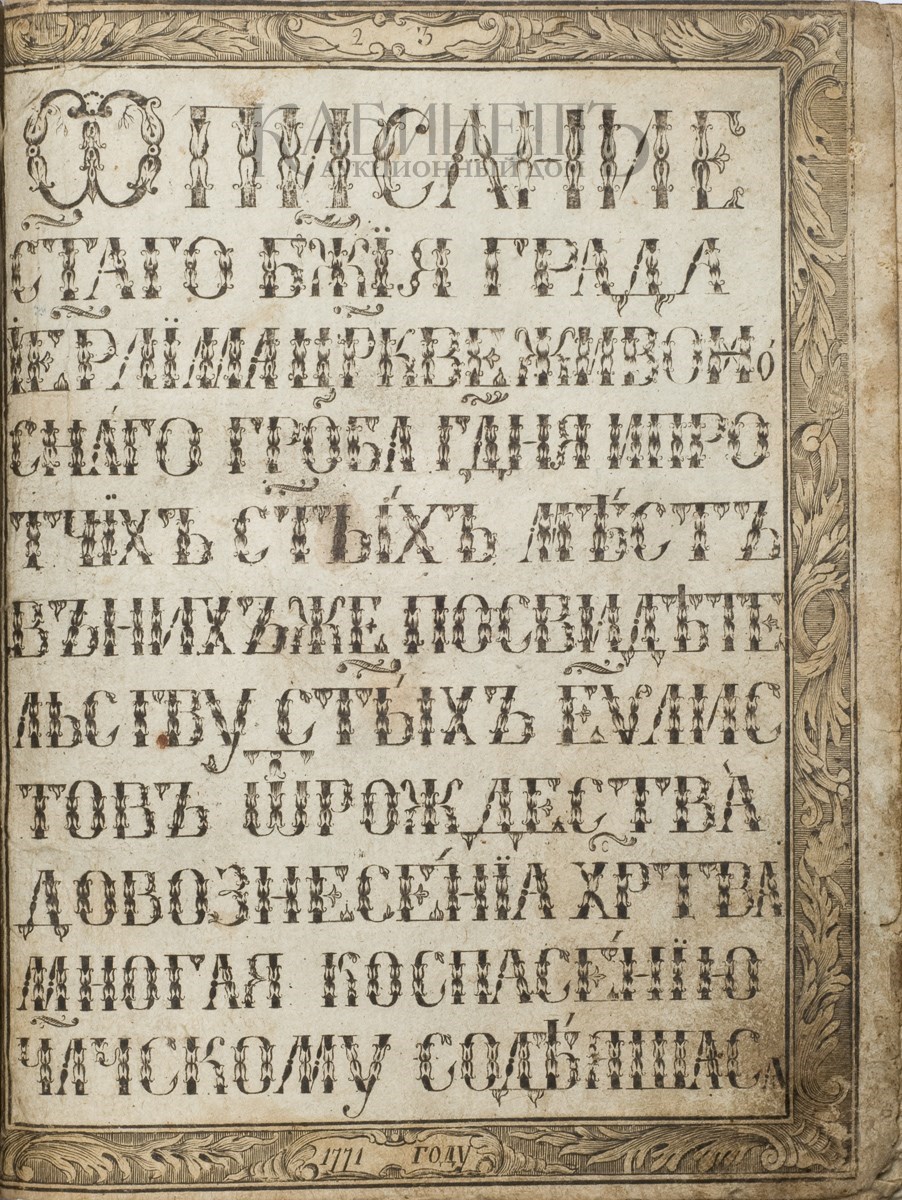 2 3
КАБИНЕТЪ
АУКЦИОННЫЙ ДОМ
Ѡ ПИСАНИЕ
СТАГО БЖ҃ЇЯ ГРАДА
ІЕРЛ҃ЇМА ЦР҃КВЕ ЖИВОНО́
СНА́ГО ГРО҃БА ГДНЯ И ПРО
ТЧЇХЪ СТ҃Ы́ХЪ МѢ́СТЪ
ВЪ НИХЪЖЕ ПО СВИДѢТЕ
ЛЬСТВУ СТ҃Ы́ХЪ ЕѴЛ҃ИС
ТОВЪ Ѿ РОЖДЕСТВА̀
ДО ВОЗНЕСЕ́НЇА ХР҃ТВА
МНОГАЯ КО СПАСЕ́НЇЮ
ЧЛ҃ЧСКОМУ СОДѢ́ЯШАСѦ
1771 ГОДУ